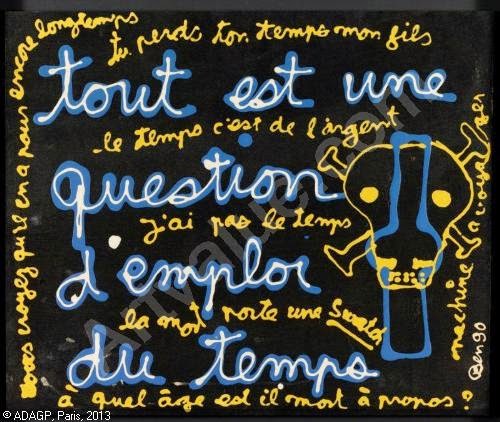 tu perds ton temps mon fils
tout est une
le temps c'est de l'argent
question
j'ai pas le temps
d'emploi
la mort porte une Swatch
du temps
à quel âge est il mort à propos ?
vous croyez qu'il en a pour encore longtemps
machine à voyager
Ben 90
Artvalue.com
© ADAGP, Paris, 2013